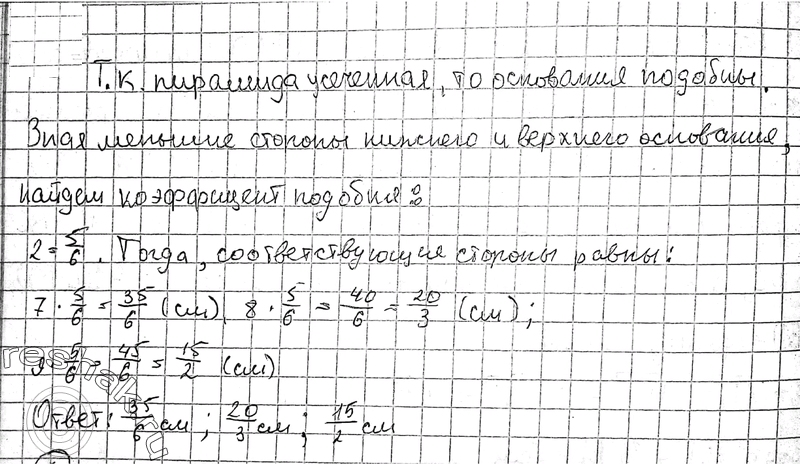 Т.к. пирамида усеченная, то основания подобны.
Зная меньшие стороны нижнего и верхнего основания,
найдем коэффициент подобия:
2 = 5/6. Тогда, соответствующие стороны равны:
7 · 5/6 = 35/6 (см), 8 · 5/6 = 40/6 = 20/3 (см);
9 · 5/6 = 45/6 = 15/2 (см)
Ответ: 35/6 см; 20/3 см; 15/2 см